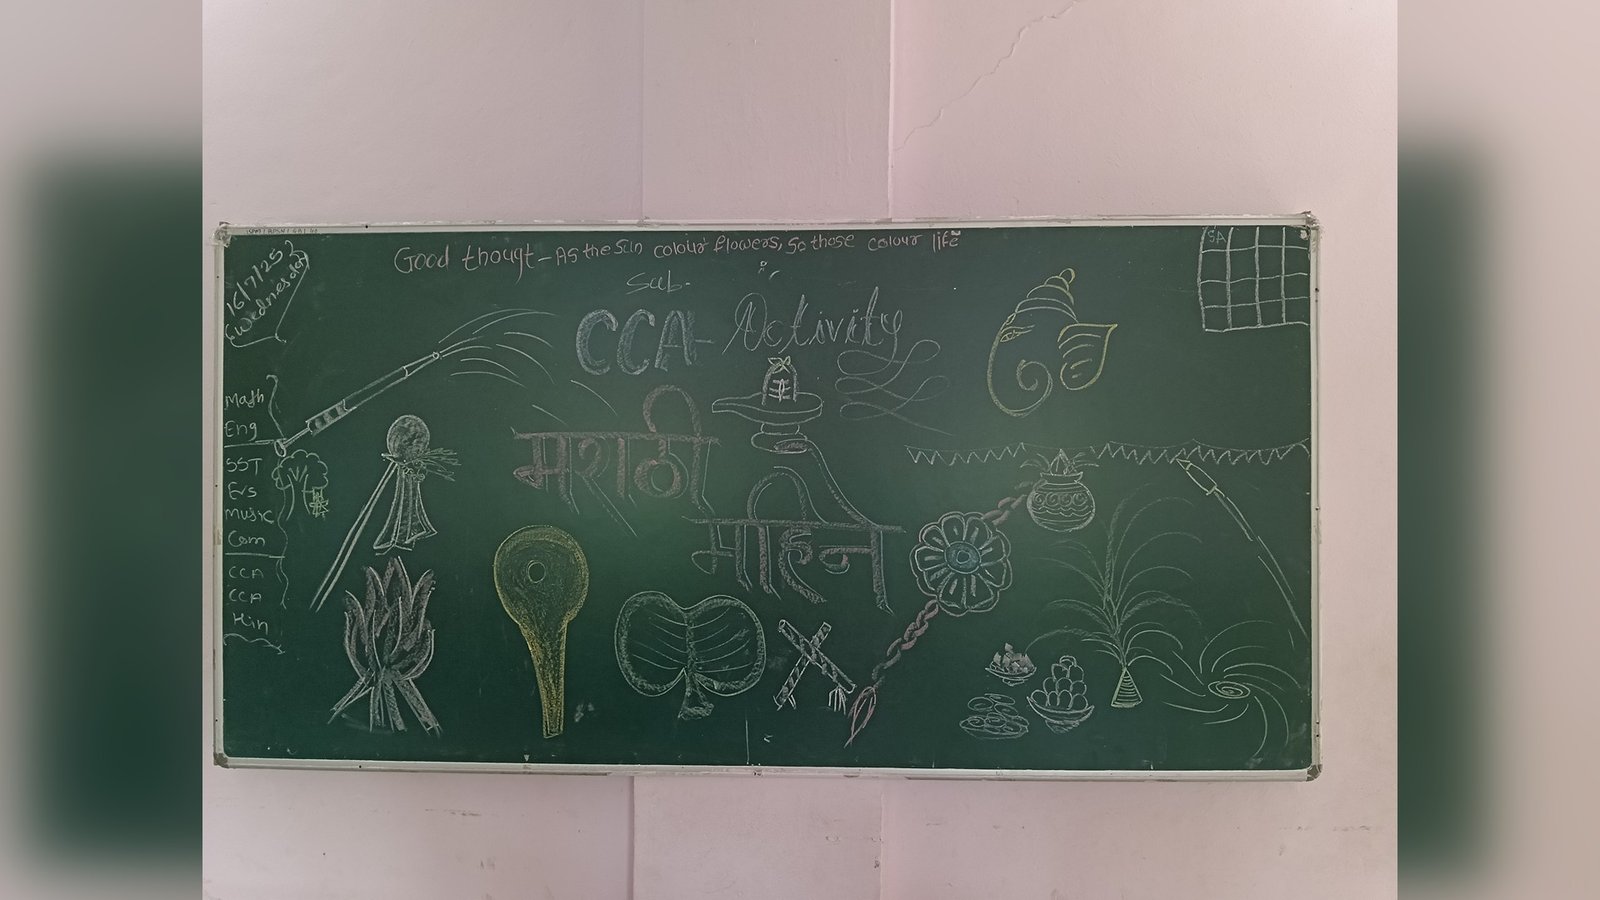 Good thougt - As the Sun colour flowers, So those colour life
16/7/25
Wednesday
Sub.
CCA - Activity
मराठी
महिने
Math
Eng
SST
Evs
Music
Com
CCA
CCA
Hin
5A